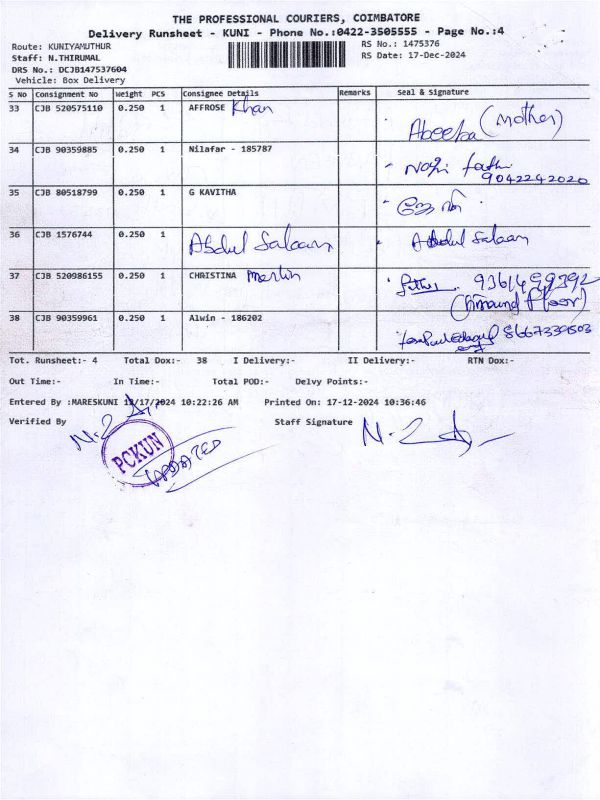 THE PROFESSIONAL COURIERS, COIMBATORE
Delivery Runsheet - KUNI - Phone No.:0422-3505555 - Page No.:4
Route: KUNIYAMUTHUR RS No.: 1475376
Staff: N.THIRUMAL RS Date: 17-Dec-2024
DRS No.: DCJB147537604
Vehicle: Box Delivery
S No Consignment No Weight PCS Consignee Details Remarks Seal & Signature
33 CJB 520575110 0.250 1 AFFROSE Khan
Abeeba (mother)
34 CJB 90359885 0.250 1 Nilafar - 185787
9042242020
35 CJB 80518799 0.250 1 G KAVITHA
36 CJB 1576744 0.250 1 Abdul Salaam Abdul Salaam
37 CJB 520986155 0.250 1 CHRISTINA Merlin
38 CJB 90359961 0.250 1 Alwin - 186202
Tot. Runsheet:- 4 Total Dox:- 38 I Delivery:- II Delivery:- RTN Dox:-
Out Time:- In Time:- Total POD:- Delvy Points:-
Entered By :MARESKUNI 12/17/2024 10:22:26 AM Printed On: 17-12-2024 10:36:46
Verified By Staff Signature
PCKUN
UPDATED